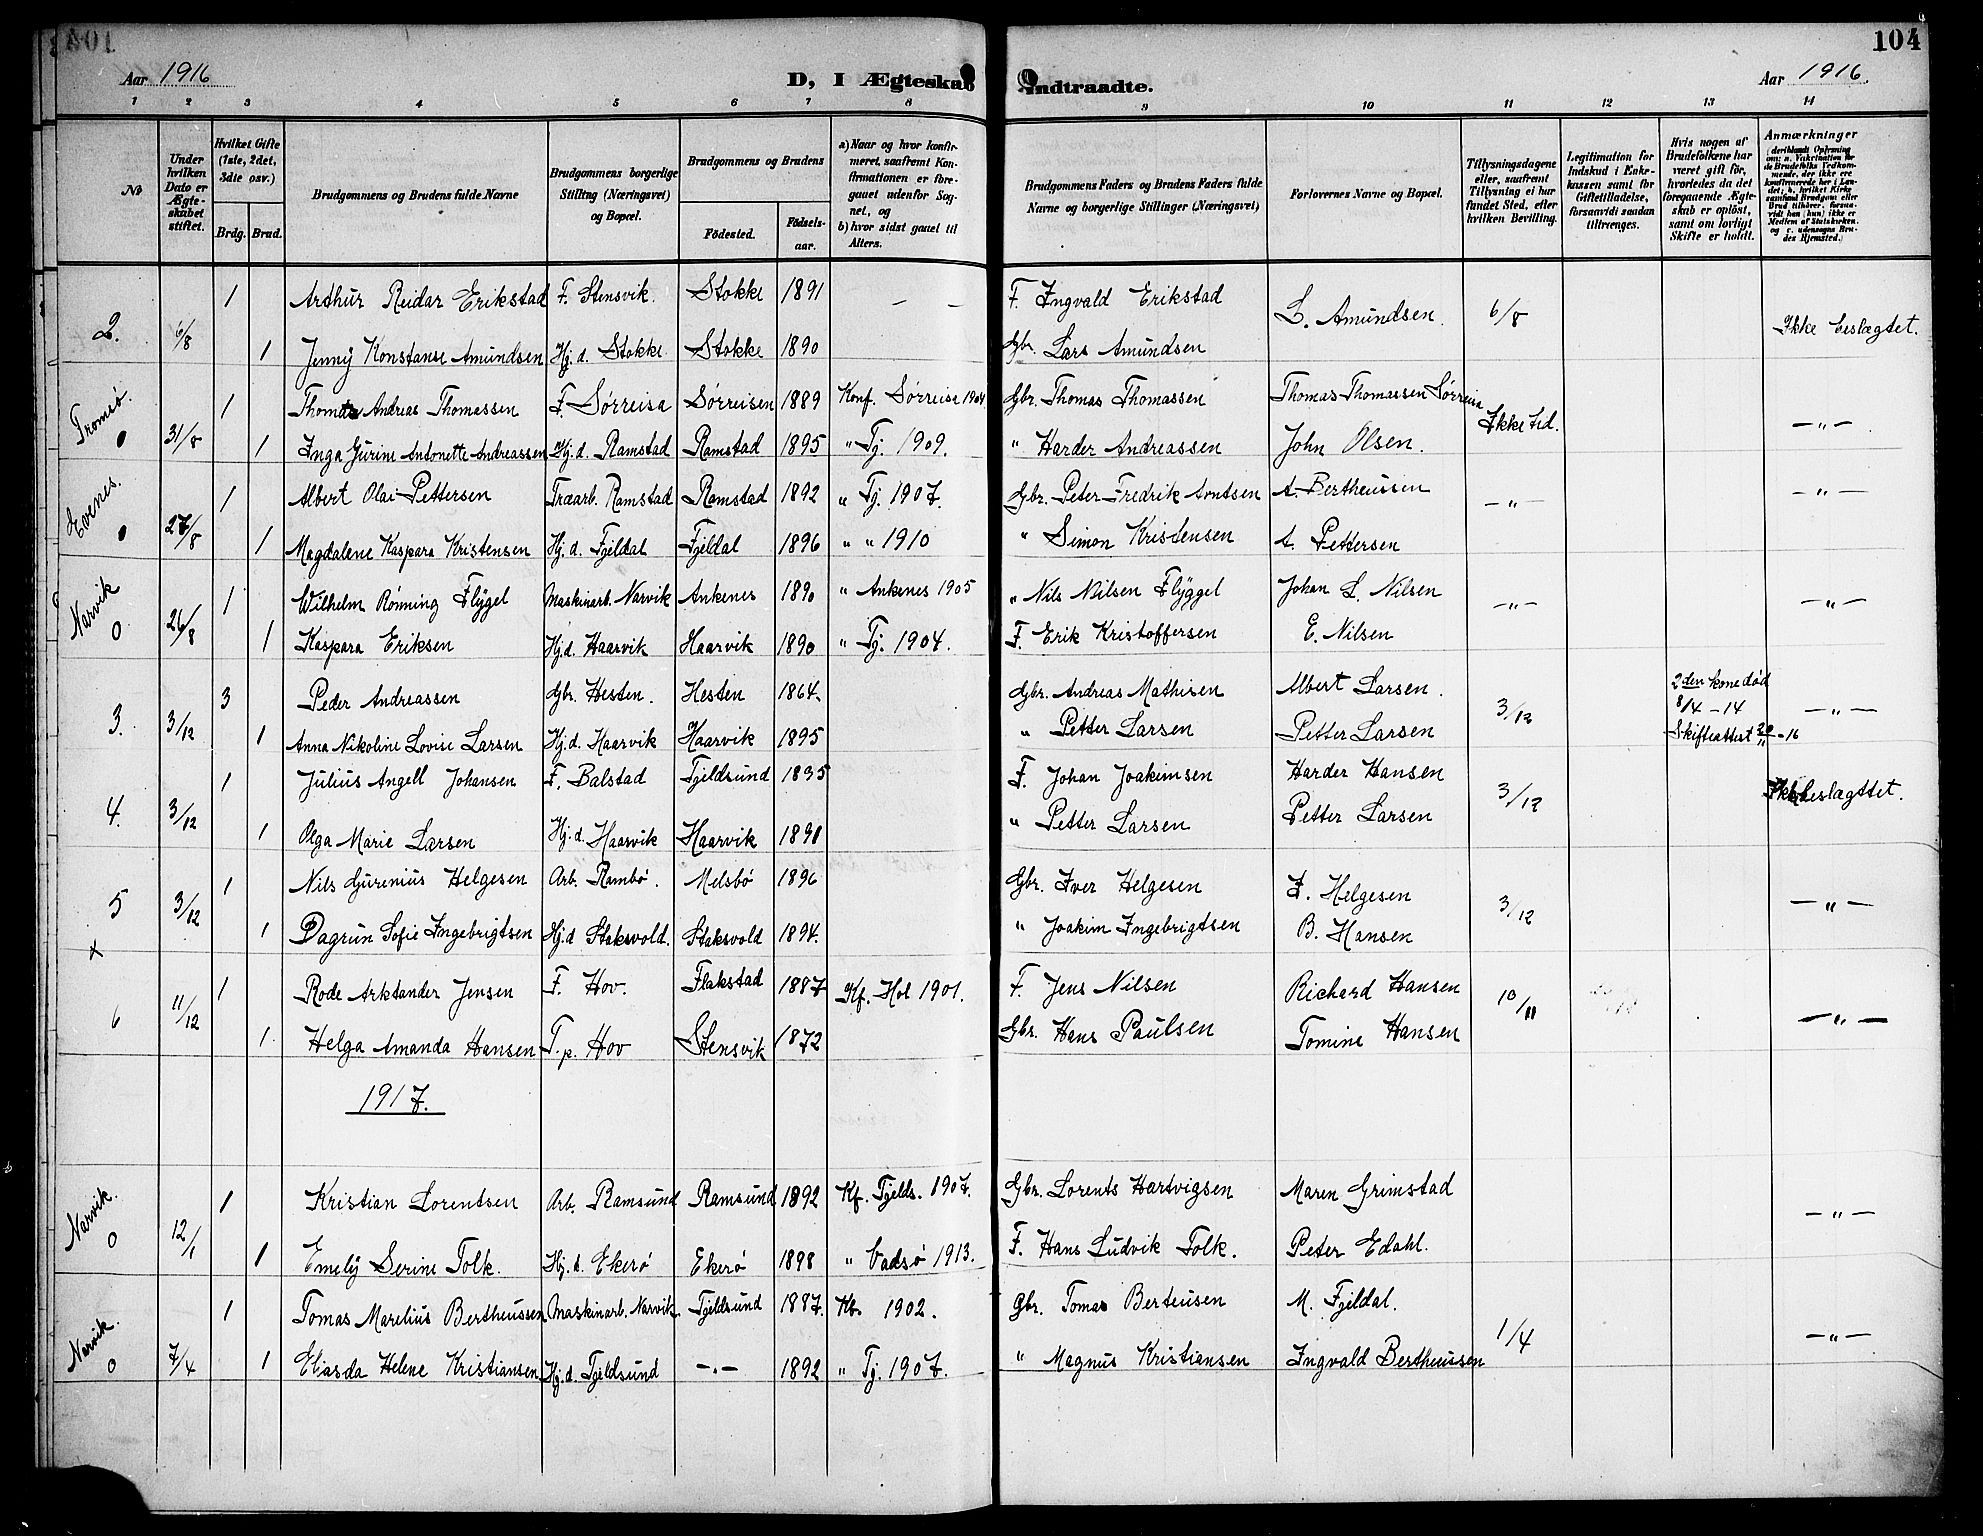 104
Aar 1916
D, I Ægteskab Indtraadte.
Aar 1916.
1 2 3 4 5 6 7 8 9 10 11 12 13 14
No
Under hvilken Dato er Ægteskabet stiftet.
Hvilket Gifte (1ste, 2det, 3die osv.)
Brdg. Brud.
Brudgommens og Brudens fulde Navne
Brudgommens borgerlige Stilling (Næringsvei) og Bopæl.
Brudgommens og Brudens
Födested. Födselsaar.
a) Naar og hvor konfirmeret, saafremt Konfirmationen er foregaaet udenfor Sognet, og
b) hvor sidst gaaet til Alters.
Brudgommens Faders og Brudens Faders fulde Navne og borgerlige Stillinger (Næringsvei)
Forlovernes Navne og Bopæl.
Tillysningsdagene eller, saafremt Tillysning ei har fundet Sted, efter hvilken Bevilling.
Legitimation for Indskud i Enkekassen samt for Giftetilladelse, forsaavidt saadan tiltrænges.
Hvis nogen af Brudefolkene har været gift før, hvorledes da det foregaaende Ægteskab er oplöst, samt om lovligt Skifte er holdt.
Anmærkninger
1 Arthur Reidar Erikstad F. Stensvik. Stokke 1891 — — F. Ingvald Erikstad
2. 6/8 L. Amundsen. 6/8 Ikke beslægtet.
1 Jenny Konstanse Amundsen Hj. d. Stokke Stokke 1890 Gbr. Lars Amundsen
Tromsö. 1 Thomas Andreas Thomassen F. Sørreisa Sørreisen 1889 Konf. Sørreisa 1904 Gbr. Thomas Thomassen Thomas Thomassen Sørreisa
0 31/8 1 Inga Jurine Antonette Andreassen Hj. d. Ramstad Ramstad 1895 " Tj. 1909. " Harder Andreassen John Olsen. —"—
Evenes. 1 Albert Olai Pettersen Træarb. Ramstad Ramstad 1892 " Tj. 1907. Gbr. Peter Fredrik A. Bertheussen —"— —"—
0 27/8 1 Magdalene Kaspara Kristensen Hj. d. Fjeldal Fjeldal 1896 " " 1910 " Simon Kristensen A. Pettersen
Narvik 1 Wilhelm Rønning Flygel Maskinarb. Narvik Ankenes 1890 " Ankenes 1905 " Nils Nilsen Flyggel Johan L. Nilsen —"— —"—
0 26/8 1 Kaspara Eriksen Hj. d. Haarvik Haarvik 1890 " Tj. 1904. F. Erik Kristoffersen E. Nilsen
3 Peder Andreassen Gbr. Hesten. Hesten 1864. Gbr. Andreas Mathisen Albert Larsen. 2den kone död
3. 3/12 3/12 8/4 - 14 —"—
1 Anna Nikoline Lovise Larsen Hj. d. Haarvik Haarvik 1895 " Petter Larsen Petter Larsen Skifteattest 30/11 - 16
1 Julius Angell Johansen F. Balstad Tjeldsund 1835 F. Johan Joakimsen Harder Hansen
4. 3/12 3/12 Ikke beslægttet.
1 Olga Marie Larsen Hj. d. Haarvik Haarvik 1891 " Petter Larsen Petter Larsen
1 Nils Gurenius Helgesen Arb. Rambö. Melsbö 1896 Gbr. Iver Helgesen I. Helgesen
5 3/12 3/12 —"—
1 Dagrun Sofie Ingebrigtsen Hj. d Staksvold. Staksvold 1894. " Joakim Ingebrigtsen B. Hansen
x
1 Rode Arktander Jensen F. Hov. Flakstad 1887 Kf. Hol 1901. F. Jens Nilsen Richard Hansen
6 11/12 10/11 —"—
1. Helga Amanda Hansen T. p. Hov Stensvik 1872 Gbr. Hans Paulsen Tomine Hansen
1917.
Narvik. 1 Kristian Lorentsen Arb. Ramsund Ramsund 1892 Kf. Tjelds. 1907. Gbr. Lorents Hartvigsen Maren Grimstad
0 12/1 —"—
1 Emely Serine Tolk. Hj. d. Ekerö Ekerö 1898 " Vadsö 1913. F. Hans Ludvik Tolk. Peter Edahl.
Narvik. 1 Tomas Marelius Bertheussen Maskinarb. Narvik. Tjeldsund 1887. 1902. Gbr. Tomas Berteusen M. Fjeldal.
0 7/4 1/4 —"—
1 Eliasda Helene Kristiansen Hj. d. Tjeldsund —"— 1892 " Tj. 1907. " Magnus Kristiansen Ingvald Bertheussen